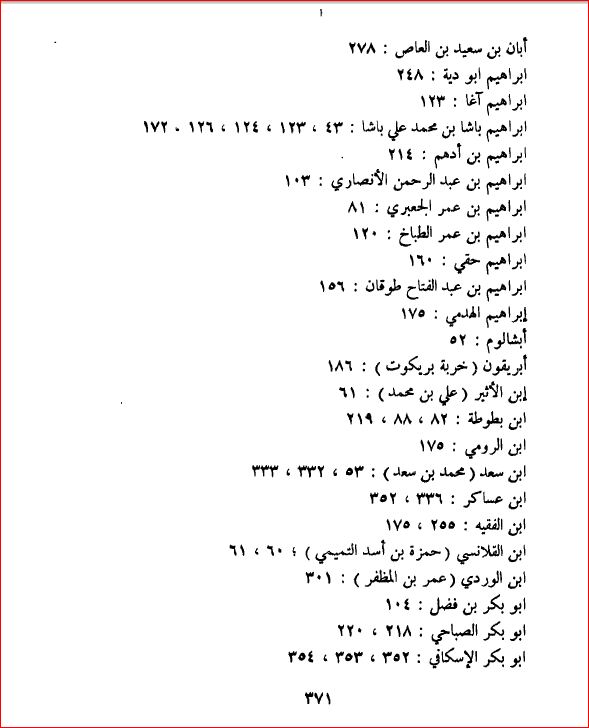 أ
أبان بن سعيد بن العاص : ٢٧٨
ابراهيم ابو دية : ٢٤٨
ابراهيم آغا : ١٢٣
ابراهيم باشا بن محمد علي باشا : ٤٣ ، ١٢٣ ، ١٢٤ ، ١٢٦ ، ١٧٢
ابراهيم بن أدهم : ٢١٤
ابراهيم بن عبد الرحمن الأنصاري : ١٠٣
ابراهيم بن عمر الجعبري : ٨١
ابراهيم بن عمر الطباخ : ١٢٠
ابراهيم حقي : ١٦٠
ابراهيم بن عبد الفتاح طوقان : ١٥٦
إبراهيم الهدمي : ١٧٥
أبشالوم : ٥٢
أبريقون ( خربة بريكوت ) : ١٨٦
إبن الأثير ( علي بن محمد ) : ٦١
ابن بطوطة : ٨٢ ، ٨٨ ، ٢١٩
ابن الرومي : ١٧٥
ابن سعد ( محمد بن سعد ) : ٥٣ ، ٣٣٢ ، ٣٣٣
ابن عساكر : ٣٣٦ ، ٣٥٢
ابن الفقيه : ٢٥٥ ، ١٧٥
ابن القلانسي ( حمزة بن أسد التميمي ) ؛ ٦٠ ، ٦١
ابن الوردي ( عمر بن المظفر ) : ٣٠١
ابو بكر بن فضل : ١٠٤
ابو بكر الصباحي : ٢١٨ ، ٢٢٠
ابو بكر الإسكافي : ٣٥٢ ، ٣٥٣ ، ٣٥٤
٣٧١